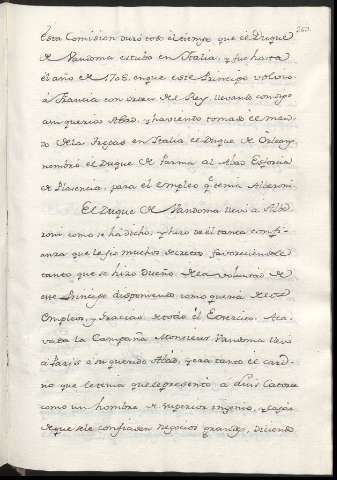 260
Esta Comision duró todo el tiempo que el Duque
de Vandoma estubo en Italia, y fue hasta
el año de 1706. en que este Principe volvio
á Francia con orden del Rey, llevando consigo
a su querido Abad, y haviendo tomado el man-
do de las Tropas en Italia el Duque de Orleans
nombró el Duque de Parma al Abad Esforcia
de Plasencia, para el empleo q.e tenia Alberoni.
El Duque de Vandoma llevó a Albe-
roni como se há dicho, y hizo de el tanta confi-
anza que le fio muchos secretos, favoreciendole
tanto, que se hizo Dueño de la voluntad de
este Principe disponiendo como queria de los
Empleos, y Gracias de todo el Exercito. Aca-
vada la Campaña Monsieur Vandoma llevó
á Paris a su querido Abad, y era tanto el cari-
ño que le tenia que le presentó a Luis Catorce
como un hombre de superior ingenio, y capaz
de que se le confiasen negocios grandes, diciendo